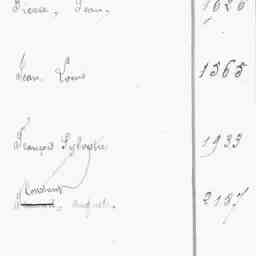 Pierre, Jean. 1626
Jean Louis 1565
François Sylvestre 1933
Auguste. 2187